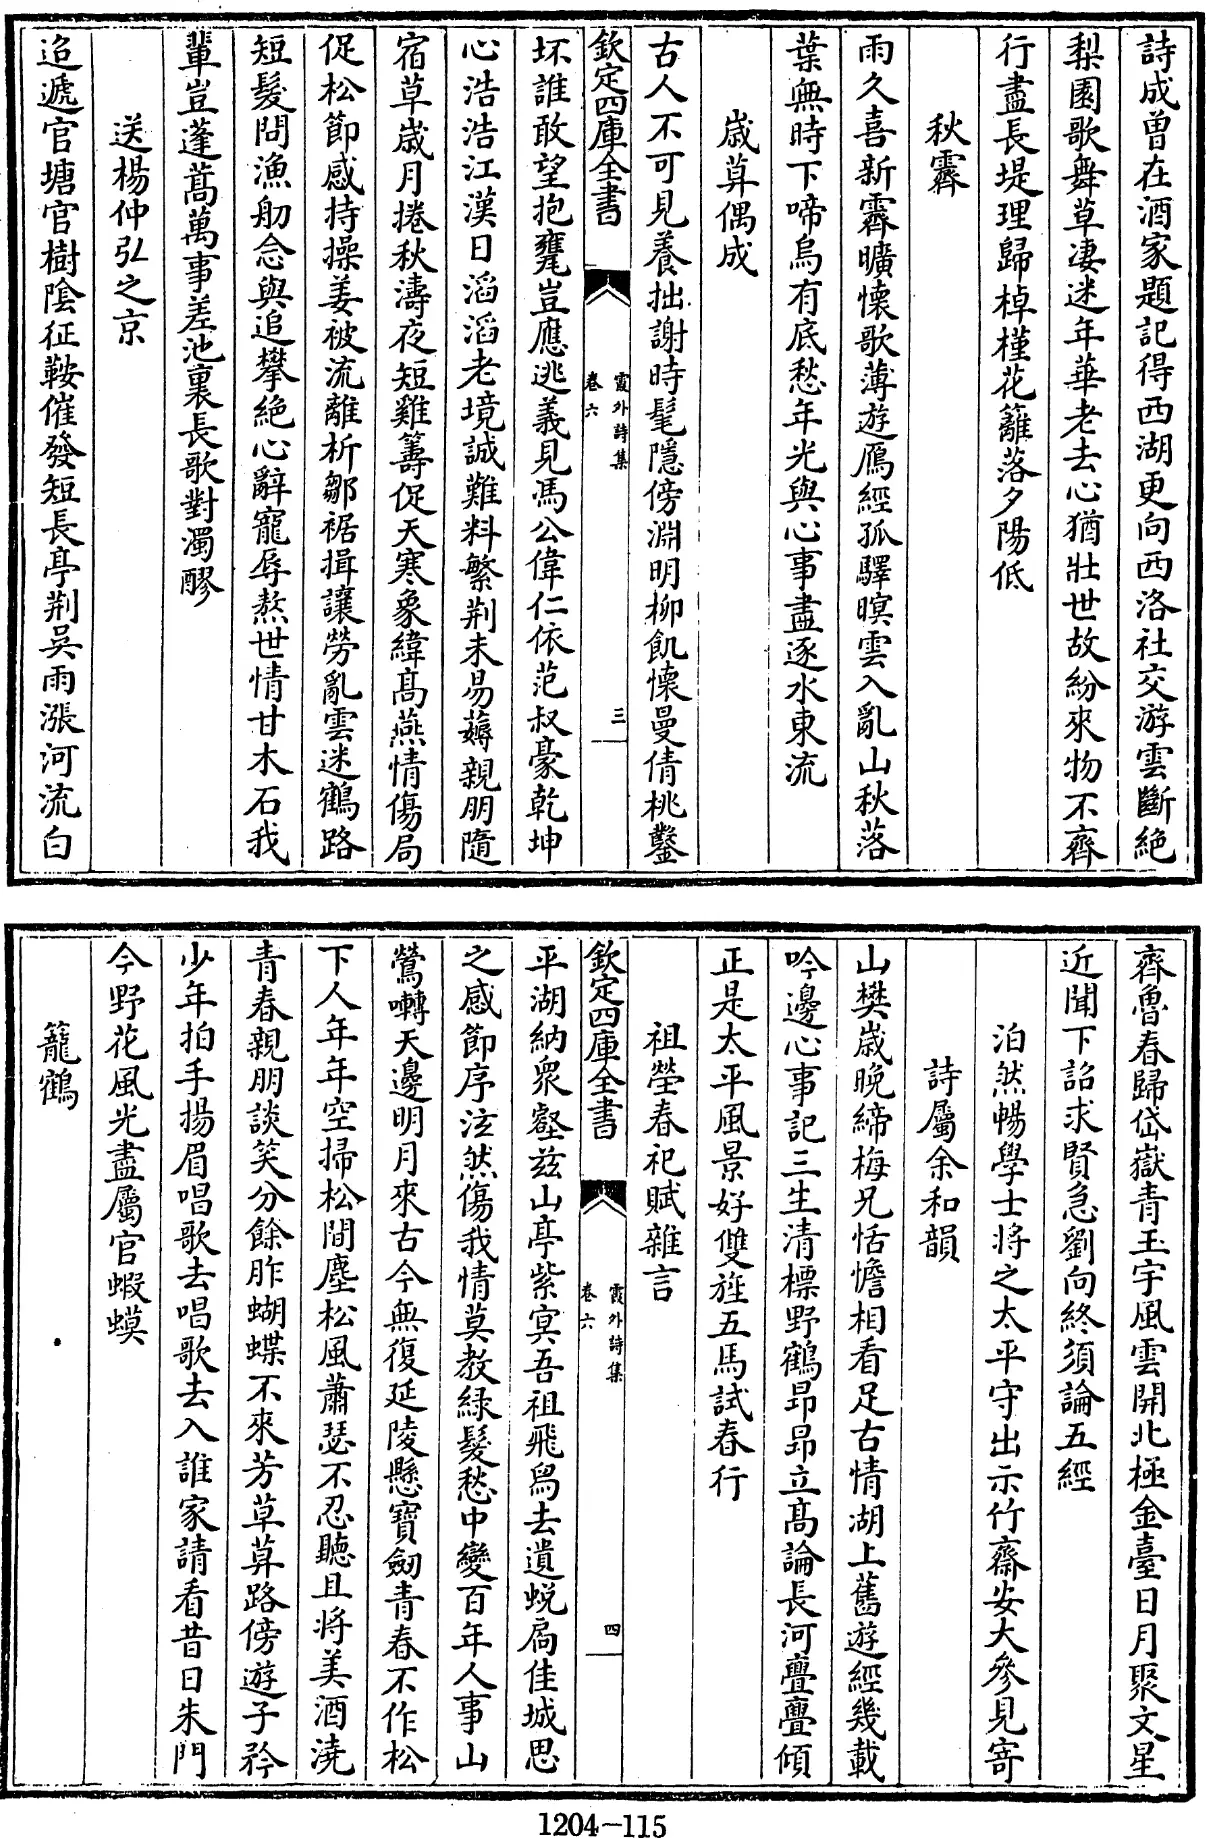 詩成曾在酒家題記得西湖更向西洛社交游雲斷絶
梨園歌舞草凄迷年華老去心猶壯世故紛來物不齊
行盡長堤理歸棹槿花籬落夕陽低
秋霽
雨久喜新霽曠懐歌薄遊鴈經孤驛暝雲入亂山秋落
葉無時下啼烏有底愁年光與心事盡逐水東流
嵗草偶成
古人不可見養拙謝時髦隱傍淵明柳飢懐曼倩桃鑿
欽定四庫全書
霞外詩集
卷六
三
坏誰敢望抱甕豈應逃義見馮公偉仁依范叔豪乾坤
心浩浩江漢日滔滔老境誠難料繁荆未易薅親朋隨
宿草嵗月捲秋濤夜短雞籌促天寒象緯髙燕情傷局
促松節感持操姜被流離析鄒裾揖讓勞亂雲迷鶴路
短髮問漁舠念與追攀絶心辭寵辱熬世情甘木石我
輩豈蓬蒿萬事差池裏長歌對濁醪
送楊仲弘之京
迢遞官塘官樹隂征鞍催發短長亭荆吳雨漲河流白
齊魯春歸岱嶽青玉宇風雲開北極金臺日月聚文星
近聞下詔求賢急劉向終須論五經
泊然暢學士將之太平守出示竹齋安大參見寄
詩屬余和韻
山樊嵗晩締梅兄恬憺相看足古情湖上舊遊經幾載
吟邊心事記三生清標野鶴昂昂立髙論長河亹亹傾
正是太平風景好雙旌五馬試春行
祖塋春祀賦雜言
欽定四庫全書
霞外詩集
卷六
四
平湖納衆壑兹山亭紫㝠吾祖飛舄去遺蜕扃佳城思
之感節序泫然傷我情莫教緑髮愁中變百年人事山
鶯囀天邊明月來古今無復延陵懸寳劒青春不作松
下人年年空掃松間塵松風蕭瑟不忍聽且將美酒澆
青春親朋談笑分餘胙蝴蝶不來芳草草路傍遊子矜
少年拍手揚眉唱歌去唱歌去入誰家請看昔日朱門
今野花風光盡屬官蝦蟆
籠鶴
1204-115